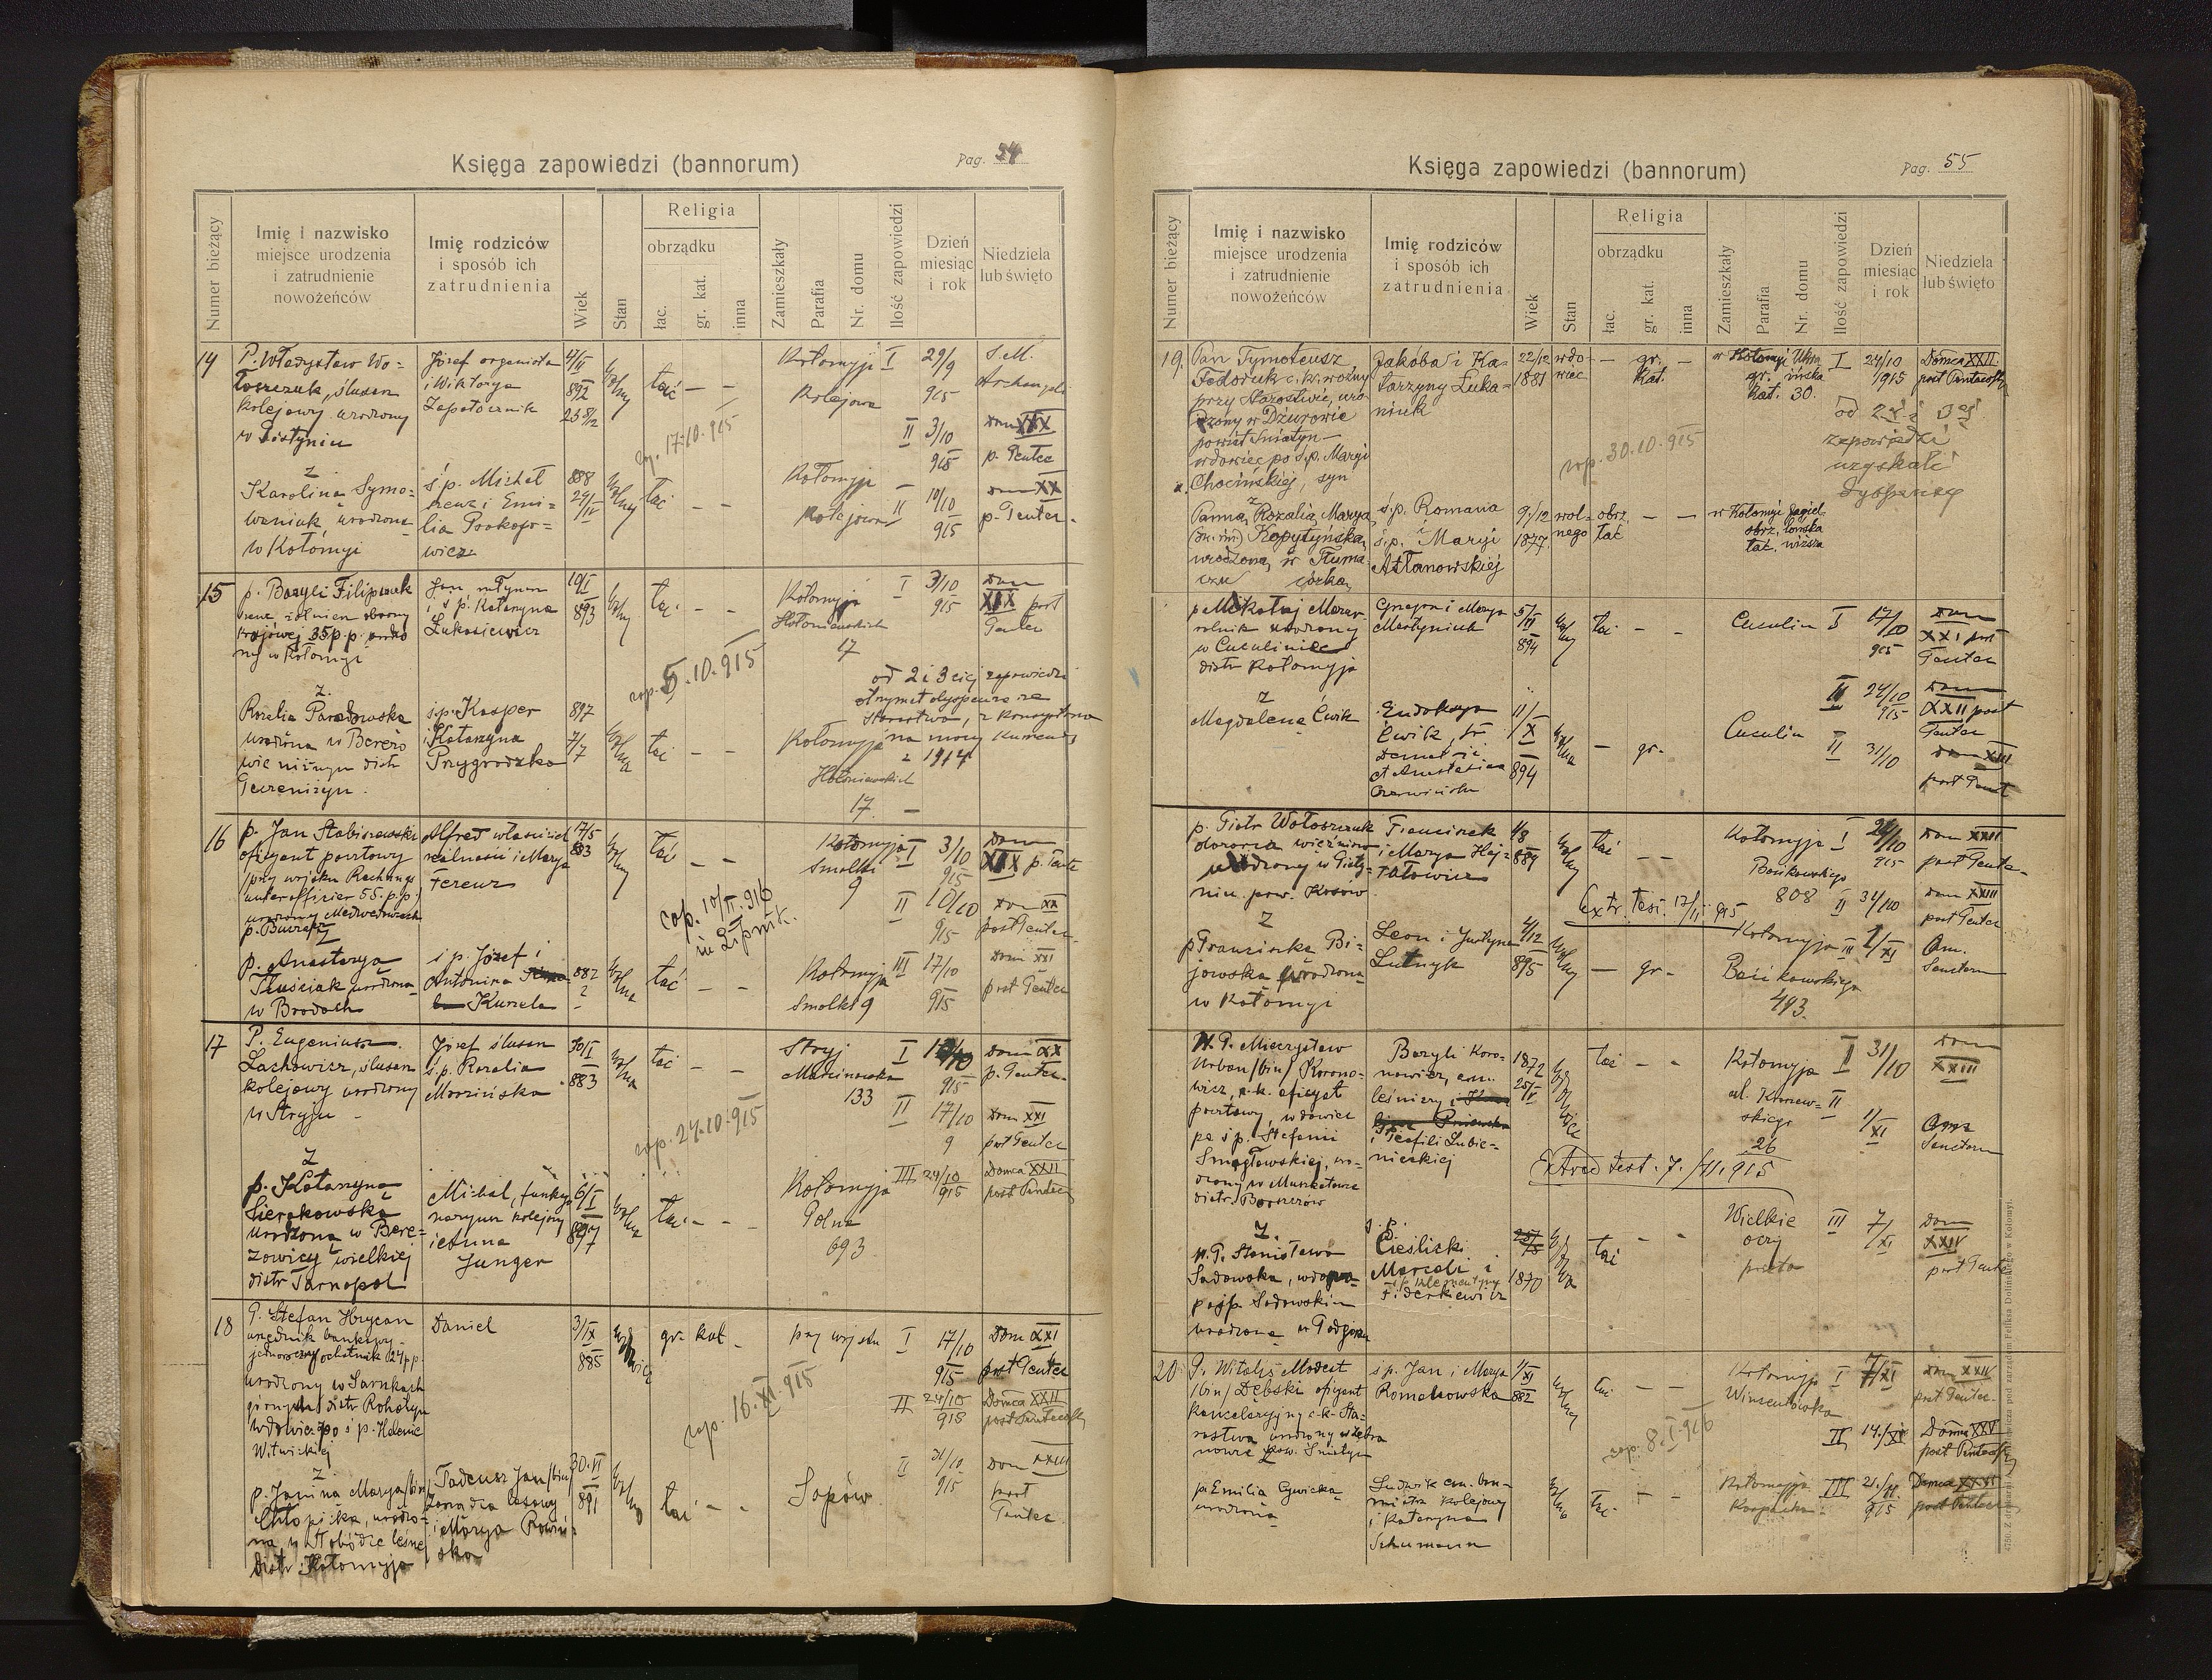 Księga zapowiedzi (bannorum)
Pag. 54
Numer bieżący
Imię i nazwisko
miejsce urodzenia
i zatrudnienie
nowożeńców
Imię rodziców
i sposób ich
zatrudnienia
Wiek
Stan
Religia
obrządku
łac.
gr. kat.
inna
Zamieszkały
Parafia
Nr. domu
Ilość zapowiedzi
Dzień
miesiąc
i rok
Niedziela
lub święto
14
P. Władysław Wo-
łoszczuk, ślusarz
kolejowy urodzony
w Pistyniu
z
Karolina Symo-
waniuk, urodzona
w Kołomyi
Józef organista
i Wiktorya
Zapotocznik
ś.p. Michał
i Emi-
lia Prokopo-
wicz
892
888
wolny
łać — —
rop. 17.10.915
Kołomyja I 29/9 S. M.
Kolejowa 915 Archangeli
II 3/10 Dom XIX
915 p. Pentec
Kołomyja —
Kolejowa II 10/10 Dom XX
915 p. Pentec.
15
p. Bazyli Filipczuk
żołnierz obrony
krajowej 35 p.p. urodzo
ny w Kołomyi
z.
Rozalia Paradowska
urodzona w Berezo
wie niżnym distr
Peczeniżyn.
Jan, młynarz
i ś.p. Katarzyna
Łukasiewicz
ś.p. Kasper
i Katarzyna
Przygrodzka
10/I
893
897
7/7
łać - -
rop. 5.10.915
Kołomyja I 3/10 Dom
915 XIX post
Hołoniewskich Pentec
17
od 2 i 3ciej zapowiedzi
otrzymał dyspenzę ze
Starostwa, z Konsystorza
na mocy Kurendy
z 1914
Kołomyja
Hołoniewskich
17. —
16
p. Jan Stabiszewski
oficyant pocztowy
przy wojsku Rechnungs
unteroffizier 55. p.p.)
urodzony Medwedowcach
p. Buczacz
z
p. Anastazya
Tłuściak urodzona
w Brodach
Alfred właściciel
realności i Marya
Ferenz
ś.p. Józef i
Antonina
Kurzela
17/5
883
882
łać — —
cop. 10/II. 916
in Lipnik.
Kołomyja I 3/10 Dom
Smolki 915 XIX p. Pente
9
II 10/10 Dom XX
915 post Pentec.
Kołomyja III 17/10 Dom XXI
Smolki 9 915 post Pentec
17
P. Eugeniusz
Lachowicz, ślusarz
kolejowy urodzony
w Stryju -
z
p. Katarzyna
Sierakowska
urodzona w Bere-
zowicy wielkiej
distr Tarnopol
Józef ślusarz
ś.p. Rozalia
Mrozińska
Michał, funkcyo
naryusz kolejowy
i Anna
Junger
30/I
883
6/I
897
łać - -
rop. 24.10.915
Stryj I 10/10 Dom XX
915 p. Pentec.
133
II 17/10 Dom XXI
9 post Pentec
Kołomyja III 24/10 Domca XXII
915 post Pentec
Polna
693
18
P. Stefan Hrycan
urzędnik bankowy-
jednoroczny ochotnik 24 p.p.
urodzony w Sarnkach
górnych distr Rohatyn
wdowiec po ś.p. Helenie
Witwickiej
z
p. Janina Marya /bin/
Chłopicka, urodzo-
na w Słobódce leśnej
distr. Kołomyja
Daniel
Tadeusz Jan /bin/
zarządca lasowy
i Marya Rowiń-
ska
3/IX
885
30.VI
891
gr. kat -
łać - -
rop. 16.XI.915
przy wojsku I 17/10 Dom XXI
915 post Pentec
II 24/10 Domca XXII
915 post Pentecosty
Sopów II 31/10 Dom XXIII
915 post
Pentec.
Księga zapowiedzi (bannorum)
Pag. 55
Numer bieżący
Imię i nazwisko
miejsce urodzenia
i zatrudnienie
nowożeńców
Imię rodziców
i sposób ich
zatrudnienia
Wiek
Stan
Religia
obrządku
łac.
gr. kat.
inna
Zamieszkały
Parafia
Nr. domu
Ilość zapowiedzi
Dzień
miesiąc
i rok
Niedziela
lub święto
19.
Pan Tymoteusz
Fedoruk c. k. woźny
przy Starostwie, uro-
dzony w Dżurowie
powiat Śniatyn —
wdowiec po ś.p. Maryi
Chocińskiej, syn
z
Panna Rozalia Marya
(2. im.) Kopytyńska,
urodzona w Tłuma-
czu córka
Jakóba i Ka-
tarzyny Łuka-
niuk
ś.p. Romana
i
ś.p. Maryi
Astanowskiej
22/12
1881
9/12
1877.
wdo-
wiec
wol-
nego
— gr. —
kat.
obrz. — —
łać
rop. 30.10.915
w Kołomyi I 24/10 Domca XXII
gr. 1915 post Pentecosty
kat. 30.
od 2ej i 3ej
zapowiedzi
uzyskali
dyspensę
w Kołomyi Jagiel-
obrz. lońska
łać. wiższa
p Mikołaj Mazur
rolnik urodzony
w Cuculinie
distr Kołomyja
z
Magdalena Ćwik
Grzegorz i Marya
Martyniuk
Eudokya
Ćwik,
et Anastasiae
Czerwińska
5/II
894
11/X
894
łać - -
— gr. -
Cuculin I 17/10 Dom
915 XXI post
Pentec
II 24/10 Dom
915 XXII post
Pentec
Cuculin II 31/10 Dom XXIII
post Pent
p. Piotr Wołoszczuk
dozorca więzniów
urodzony w Pisty-
niu. pow. Kosów
z
p Franciszka Bi-
jowska urodzona
w Kołomyi
Franciszek
i Marya Haj-
tałowicz
Leon i Justyna
Lutnyk
1/8
889
4/12
895
łać - -
— gr. -
Extr. test. 17/II 915
Kołomyja I 24/10 Dom XXII
915 post Pente-
Bońkowskiego
808 II 31/10 Dom XXIII
post Pentec
Kołomyja III 1/XI Om.
Bońkowskiego Sanctorum
493.
W. P. Mieczysław
Urban /bin/ Korono-
wicz, c.k. oficyał
pocztowy, wdowiec
po ś.p. Stefanii
Smagłowskiej, uro-
dzony w Muszkatowce
distr. Borszczów
z.
W. P. Stanisława
Sadowska, wdowa
po ś.p. Sadowskim
urodzona w Podgórzu
Bazyli Koro-
nowicz, em.
leśniczy i
i Teofili Lubie-
nieckiej
ś.p.
Cieślicki
Marceli i
ś.p. Klementyny
Fiderkiewicz
1872
25/IV
1870
łać - -
Extrad test. 7./11. 915
Kołomyja I 31/10 Dom
XXIII
ul. Kraszew- II
skiego 1/XI Omn
26 Sanctorum
Wielkie III 7/XI Dom
oczy XXIV
poczta post Pentec
20.
P. Witalis Modest
/bin/ Dębski oficyant
kancelaryjny c.-k. Sta-
rostwa urodzony w Zebra
nówce pow. Śniatyn
p. Emilia Cywicka
urodzona
ś.p. Jan i Marya
Romanowska
Ludwik em. bu-
mistrz kolejowy
i Katarzyna
Schumann
1/XI
882
łać - -
rop. 8.I.916
Kołomyja I 7/XI Dom XXIV
Wincentówka post Pentec.
II 14./XI Domca XXV
post Pentecosty
Kołomyja III 21./11. Domca XXVI
915 post Pentecos
4750. Z drukarni
pod zarządem Feliksa Dolińskiego w Kołomyi.